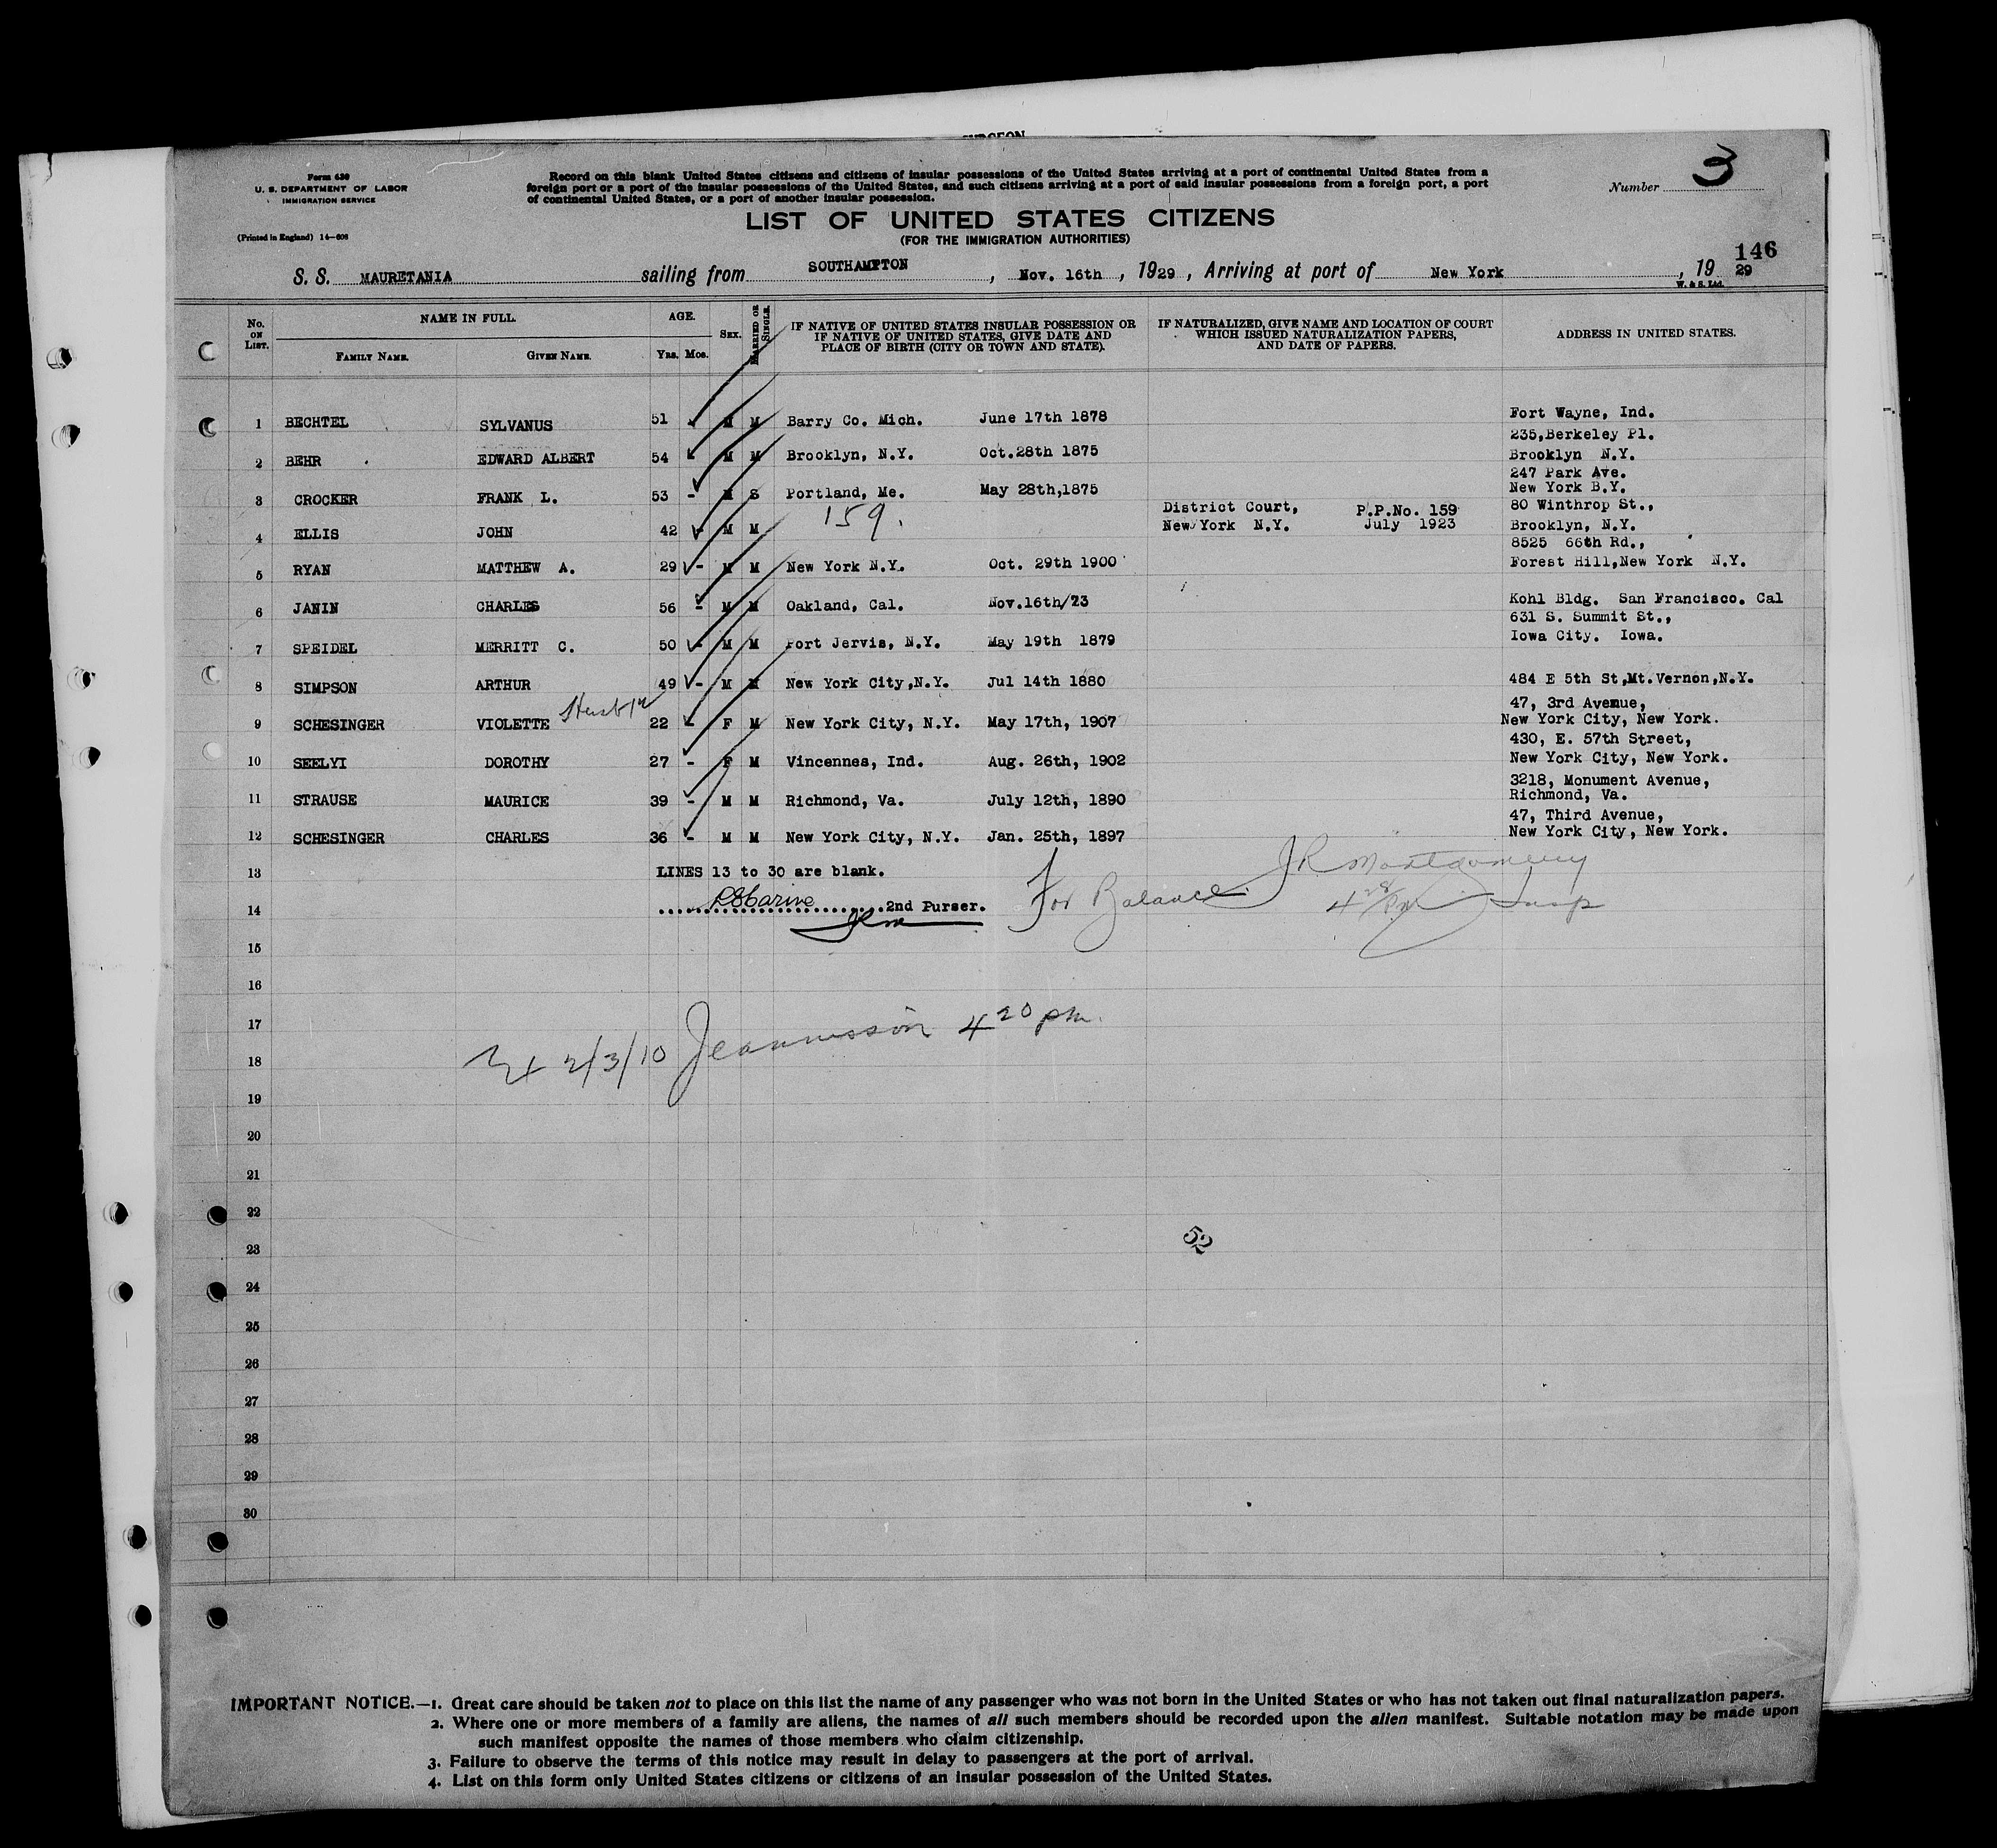 SURGEON
Form 630
U. S. DEPARTMENT OF LABOR
IMMIGRATION SERVICE
(Printed in England) 14—608
Record on this blank United States citizens and citizens of insular possessions of the United States arriving at a port of continental United States from a
foreign port or a port of the insular possessions of the United States, and such citizens arriving at a port of said insular possessions from a foreign port, a port
of continental United States, or a port of another insular possession.
Number 3
LIST OF UNITED STATES CITIZENS
(FOR THE IMMIGRATION AUTHORITIES)
146
S. S. MAURETANIA sailing from SOUTHAMPTON, Nov. 16th, 1929, Arriving at port of New York, 19 29
W. & S. Ltd.
No. ON LIST. NAME IN FULL. AGE. SEX. MARRIED OR SINGLE. IF NATIVE OF UNITED STATES INSULAR POSSESSION OR IF NATIVE OF UNITED STATES, GIVE DATE AND PLACE OF BIRTH (CITY OR TOWN AND STATE). IF NATURALIZED, GIVE NAME AND LOCATION OF COURT WHICH ISSUED NATURALIZATION PAPERS, AND DATE OF PAPERS. ADDRESS IN UNITED STATES.
FAMILY NAME. GIVEN NAME. YRS. MOS.
1 BECHTEL SYLVANUS 51 - M M Barry Co. Mich. June 17th 1878 Fort Wayne, Ind.
235,Berkeley Pl.
2 BEHR EDWARD ALBERT 54 - M M Brooklyn, N.Y. Oct.28th 1875 Brooklyn N.Y.
247 Park Ave.
3 CROCKER FRANK L. 53 - M S Portland, Me. May 28th,1875 New York B.Y.
159. District Court, P.P.No. 159 80 Winthrop St.,
4 ELLIS JOHN 42 - M M New York N.Y. July 1923 Brooklyn, N.Y.
8525 66th Rd.,
5 RYAN MATTHEW A. 29 - M M New York N.Y. Oct. 29th 1900 Forest Hill,New York N.Y.
6 JANIN CHARLES 56 - M M Oakland, Cal. Nov.16th/73 Kohl Bldg. San Francisco. Cal
631 S. Summit St.,
7 SPEIDEL MERRITT C. 50 - M M Port Jervis, N.Y. May 19th 1879 Iowa City. Iowa.
8 SIMPSON ARTHUR 49 - M M New York City,N.Y. Jul 14th 1880 484 E 5th St,Mt.Vernon,N.Y.
47, 3rd Avenue,
9 SCHESINGER VIOLETTE 22 - F M New York City, N.Y. May 17th, 1907 New York City, New York.
430, E. 57th Street,
10 SEELYI DOROTHY 27 - F M Vincennes, Ind. Aug. 26th, 1902 New York City, New York.
3218, Monument Avenue,
11 STRAUSE MAURICE 39 - M M Richmond, Va. July 12th, 1890 Richmond, Va.
47, Third Avenue,
12 SCHESINGER CHARLES 36 - M M New York City, N.Y. Jan. 25th, 1897 New York City, New York.
13 LINES 13 to 30 are blank. JR Montgomery
14 2nd Purser. For Balance Insp
15
16
17
4 20 pm.
18 2/3/10
19
20
21
22
23 52
24
25
26
27
28
29
30
IMPORTANT NOTICE.—1. Great care should be taken not to place on this list the name of any passenger who was not born in the United States or who has not taken out final naturalization papers.
2. Where one or more members of a family are aliens, the names of all such members should be recorded upon the alien manifest. Suitable notation may be made upon
such manifest opposite the names of those members who claim citizenship.
3. Failure to observe the terms of this notice may result in delay to passengers at the port of arrival.
4. List on this form only United States citizens or citizens of an insular possession of the United States.